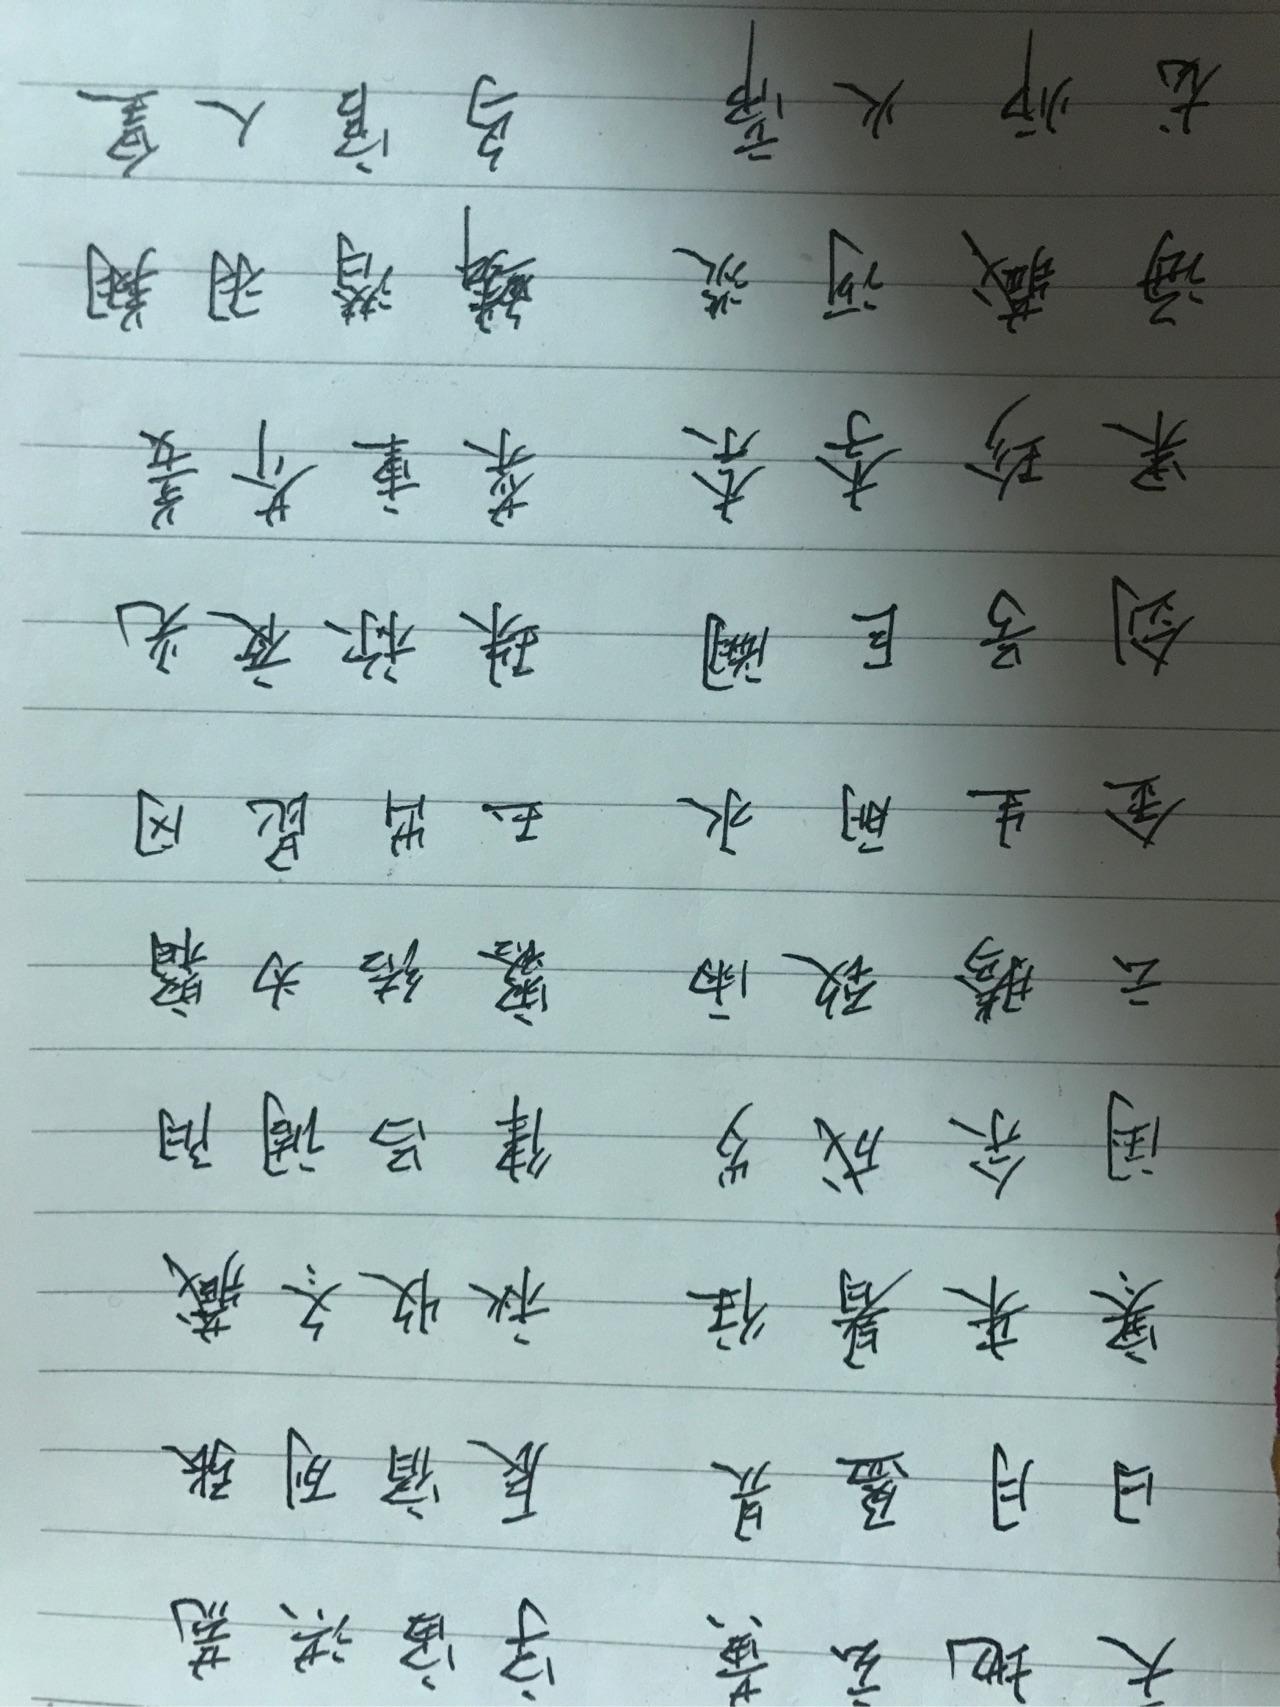 天地玄黄 宇宙洪荒
日月盈昃 辰宿列张
寒来暑往 秋收冬藏
闰余成岁 律吕调阳
云腾致雨 露结为霜
金生丽水 玉出昆冈
剑号巨阙 珠称夜光
果珍李柰 菜重芥姜
海藏河淡 鳞潜羽翔
龙师火帝 鸟官人皇